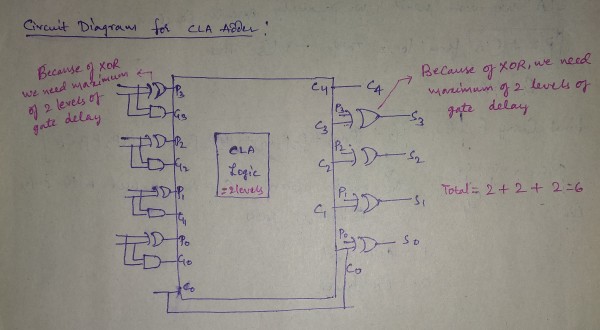 Circuit Diagram for CLA Adder:
Because of XOR
we need maximum
of 2 levels of
gate delay
P3
G3
P2
G2
P1
G1
P0
G0
C0
CLA
Logic
=2levels
C4
C4
P3
C3
S3
P2
C2
S2
P1
C1
S1
P0
C0
S0
Because of XOR, we need
maximum of 2 levels of
gate delay
Total = 2 + 2 + 2 = 6